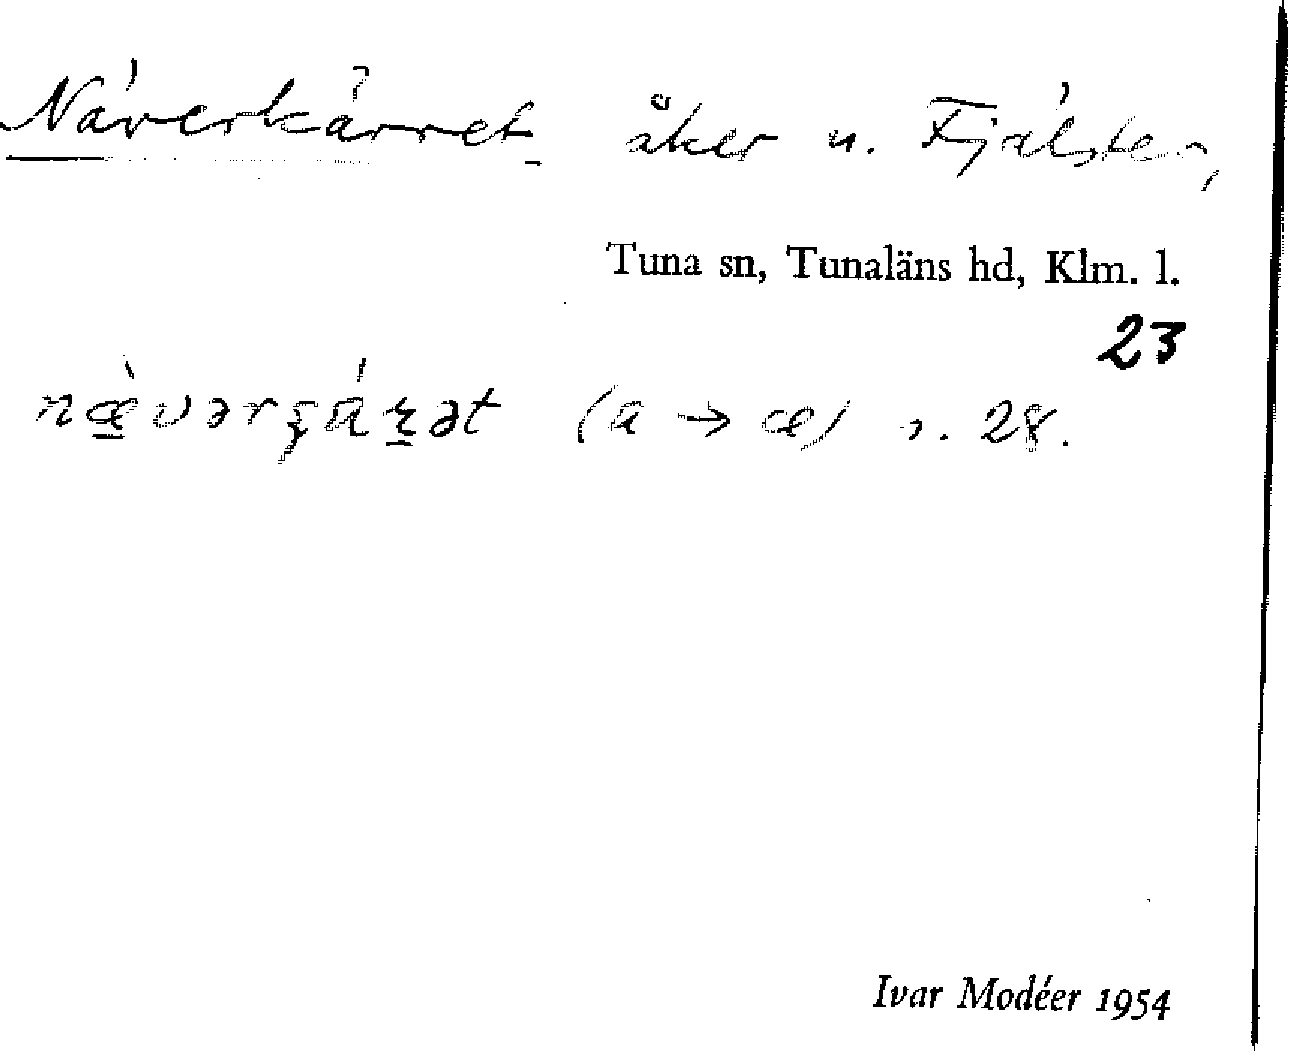 Näverkärret åker u. Fjälster,
Tuna sn, Tunaläns hd, Klm. l.
23
(a → æ) 28.
Ivar Modéer 1954